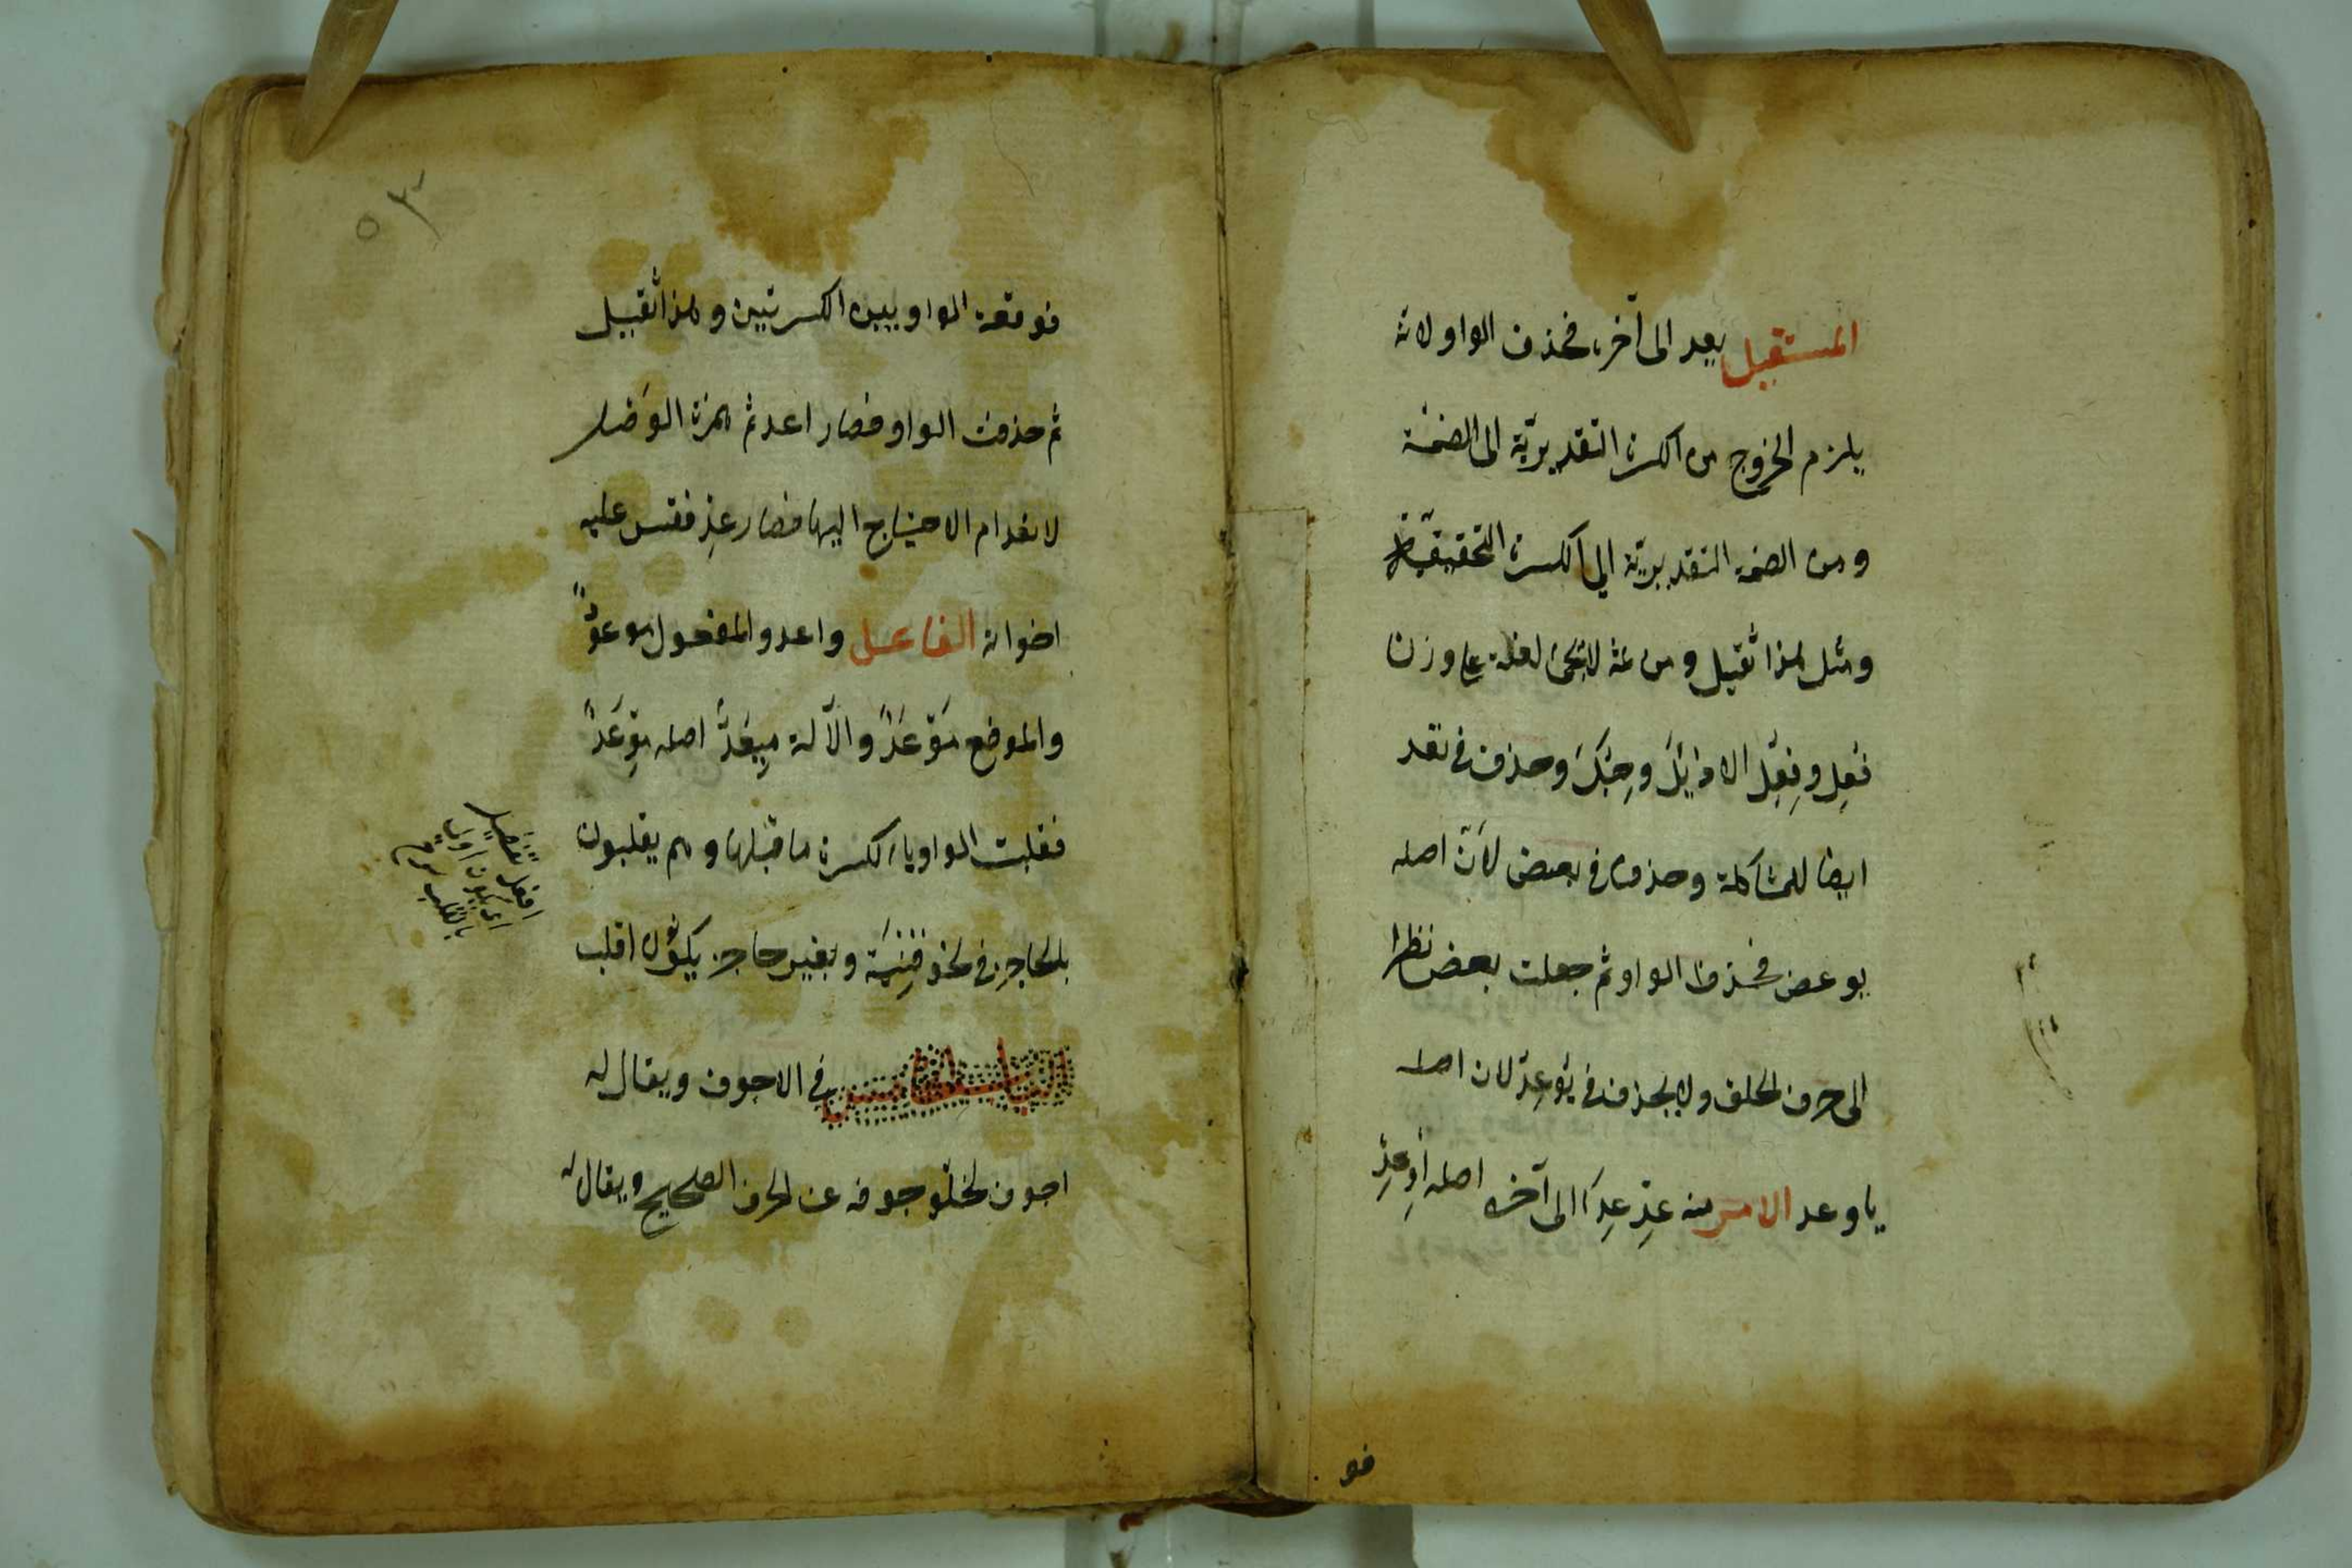 المستقبل يعد الى آخره فحذف الواو لانه
يلزم الخروج من الكسرة التقديريّة الى الضمّة
ومن الضمة التقديريّة الى الكسرة التحقيقيّة
ومثل هذا ثقيل ومن ثمه لا تجئ لغة على وزن
فُعِل وفِعُل الا دُئِل وحِبُك وحذف في تعد
ايضا للمشاكلة وحذف في بعض لانّ اصله
يوعض فحذف الواو ثم جعلت بعض نظرا
الى حرف الحلق ولا يحذف في يُوعِدُ لان اصله
ياوعد الامر منه عِدْ عِدَا الى آخره اصله اِوْعِدْ
فو
فوقعت الواو بين الكسرتين وهذا ثقيل
ثم حذفت الواو فصار اعد ثم همزة الوصل
لانعدام الاحتياج اليها فصار عِدْ فقس عليه
اخواته الفاعل واعد والمفعول موعودٌ
والموضع مَوْعَدٌ والآلة مِيعَدٌ اصله مِوْعَدٌ
فقلبت الواو ياء لكسرة ما قبلها وهم يقلبون
بالحاجز في نحو قِنْيَة وبغير حاجز يكون اقلب
الباب الخامس في الاجوف ويقال له
اجوف لخلوّ جوفه عن الحرف الصحيح ويقال له